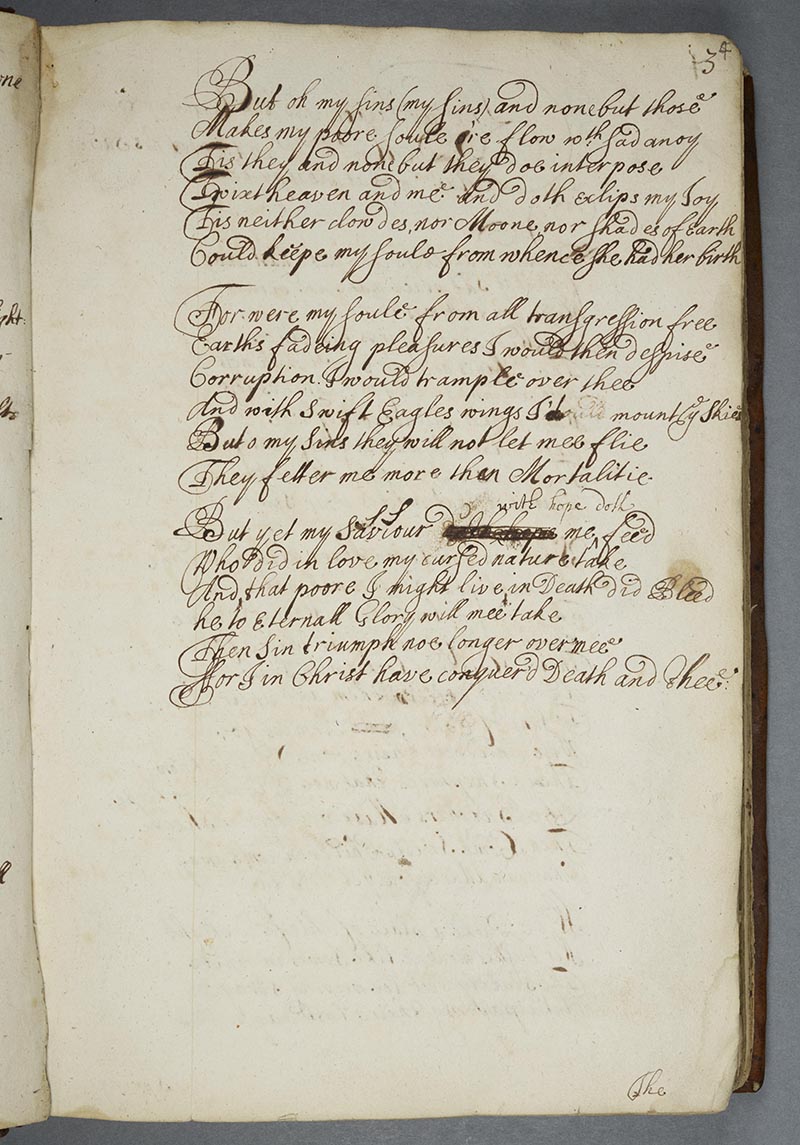 34
But oh my sins (my sins) and none but those
Makes my poore soule o're flow wth sad anoy
Tis they and none but they doe interpose
Twixt heaven and mee and doth exlips my Joy
Tis neither clowdes, nor Moone, nor shades of Earth
Could keepe my soule from whence she had her birth
For were my soule from all transgression free
Earths fadeing pleasures I would then despise
Corruption I would trample over thee
And with swift Eagles wings I'd mount ye skies
But o my sins they will not let mee flie
They fetter me more then Mortalitie
with hope doth
But yet my Saviour me feed
Who did in love my cursed nature take
And that poore I might live, in Death did Bleed
he to Eternall Glory will mee take
Then sin triumph noe longer over mee
For I in Christ have conquerd Death and thee:
The